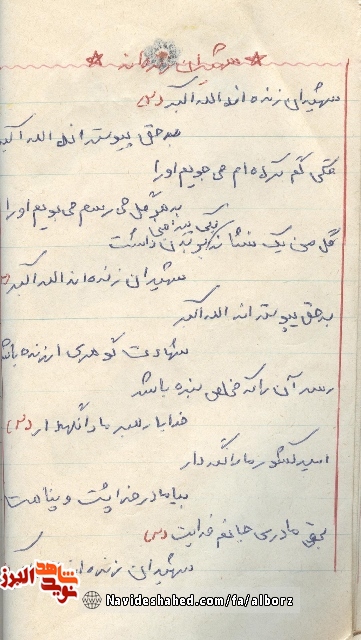 شهیدان زنده اند
شهیدان زنده اند الله اکبر (۲)
به حق پیوسته اند الله اکبر
گلی گم کرده ام می جویم او را
به هر گل می رسم می بویم او را
گل من یک نشانی در بدن داشت
یکی پیراهن
شهیدان زنده اند الله اکبر
به حق پیوسته اند الله اکبر
شهادت گوهری ارزنده باشد
رسد آن را که مخلص بنده باشد
خدایا رهبر ما را نگهدار (۲)
امید کشور ما را نگه دار
بیا مادر خدا پشت و پناهت
بحق مادری جانم فدایت (۲)
شهیدان زنده اند
نوید شاهد البرز
Navideshahed.com/fa/alborz